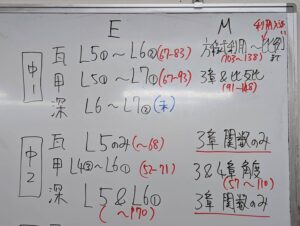 E M
利用入試
中1
瓦 L5①～L6②(67-83) 方程式利用～比例まで
(103～138)
甲 L5①～L7①(67-93) 3章&比反比
(91-148)
深 L6～L7②(未)
中2
瓦 L5のみ(～68) 3章 関数のみ
甲 L4②～L6①(52-71) 3&4章角度
(57～110)
深 L5&L6① 3章 関数のみ
(～P70)